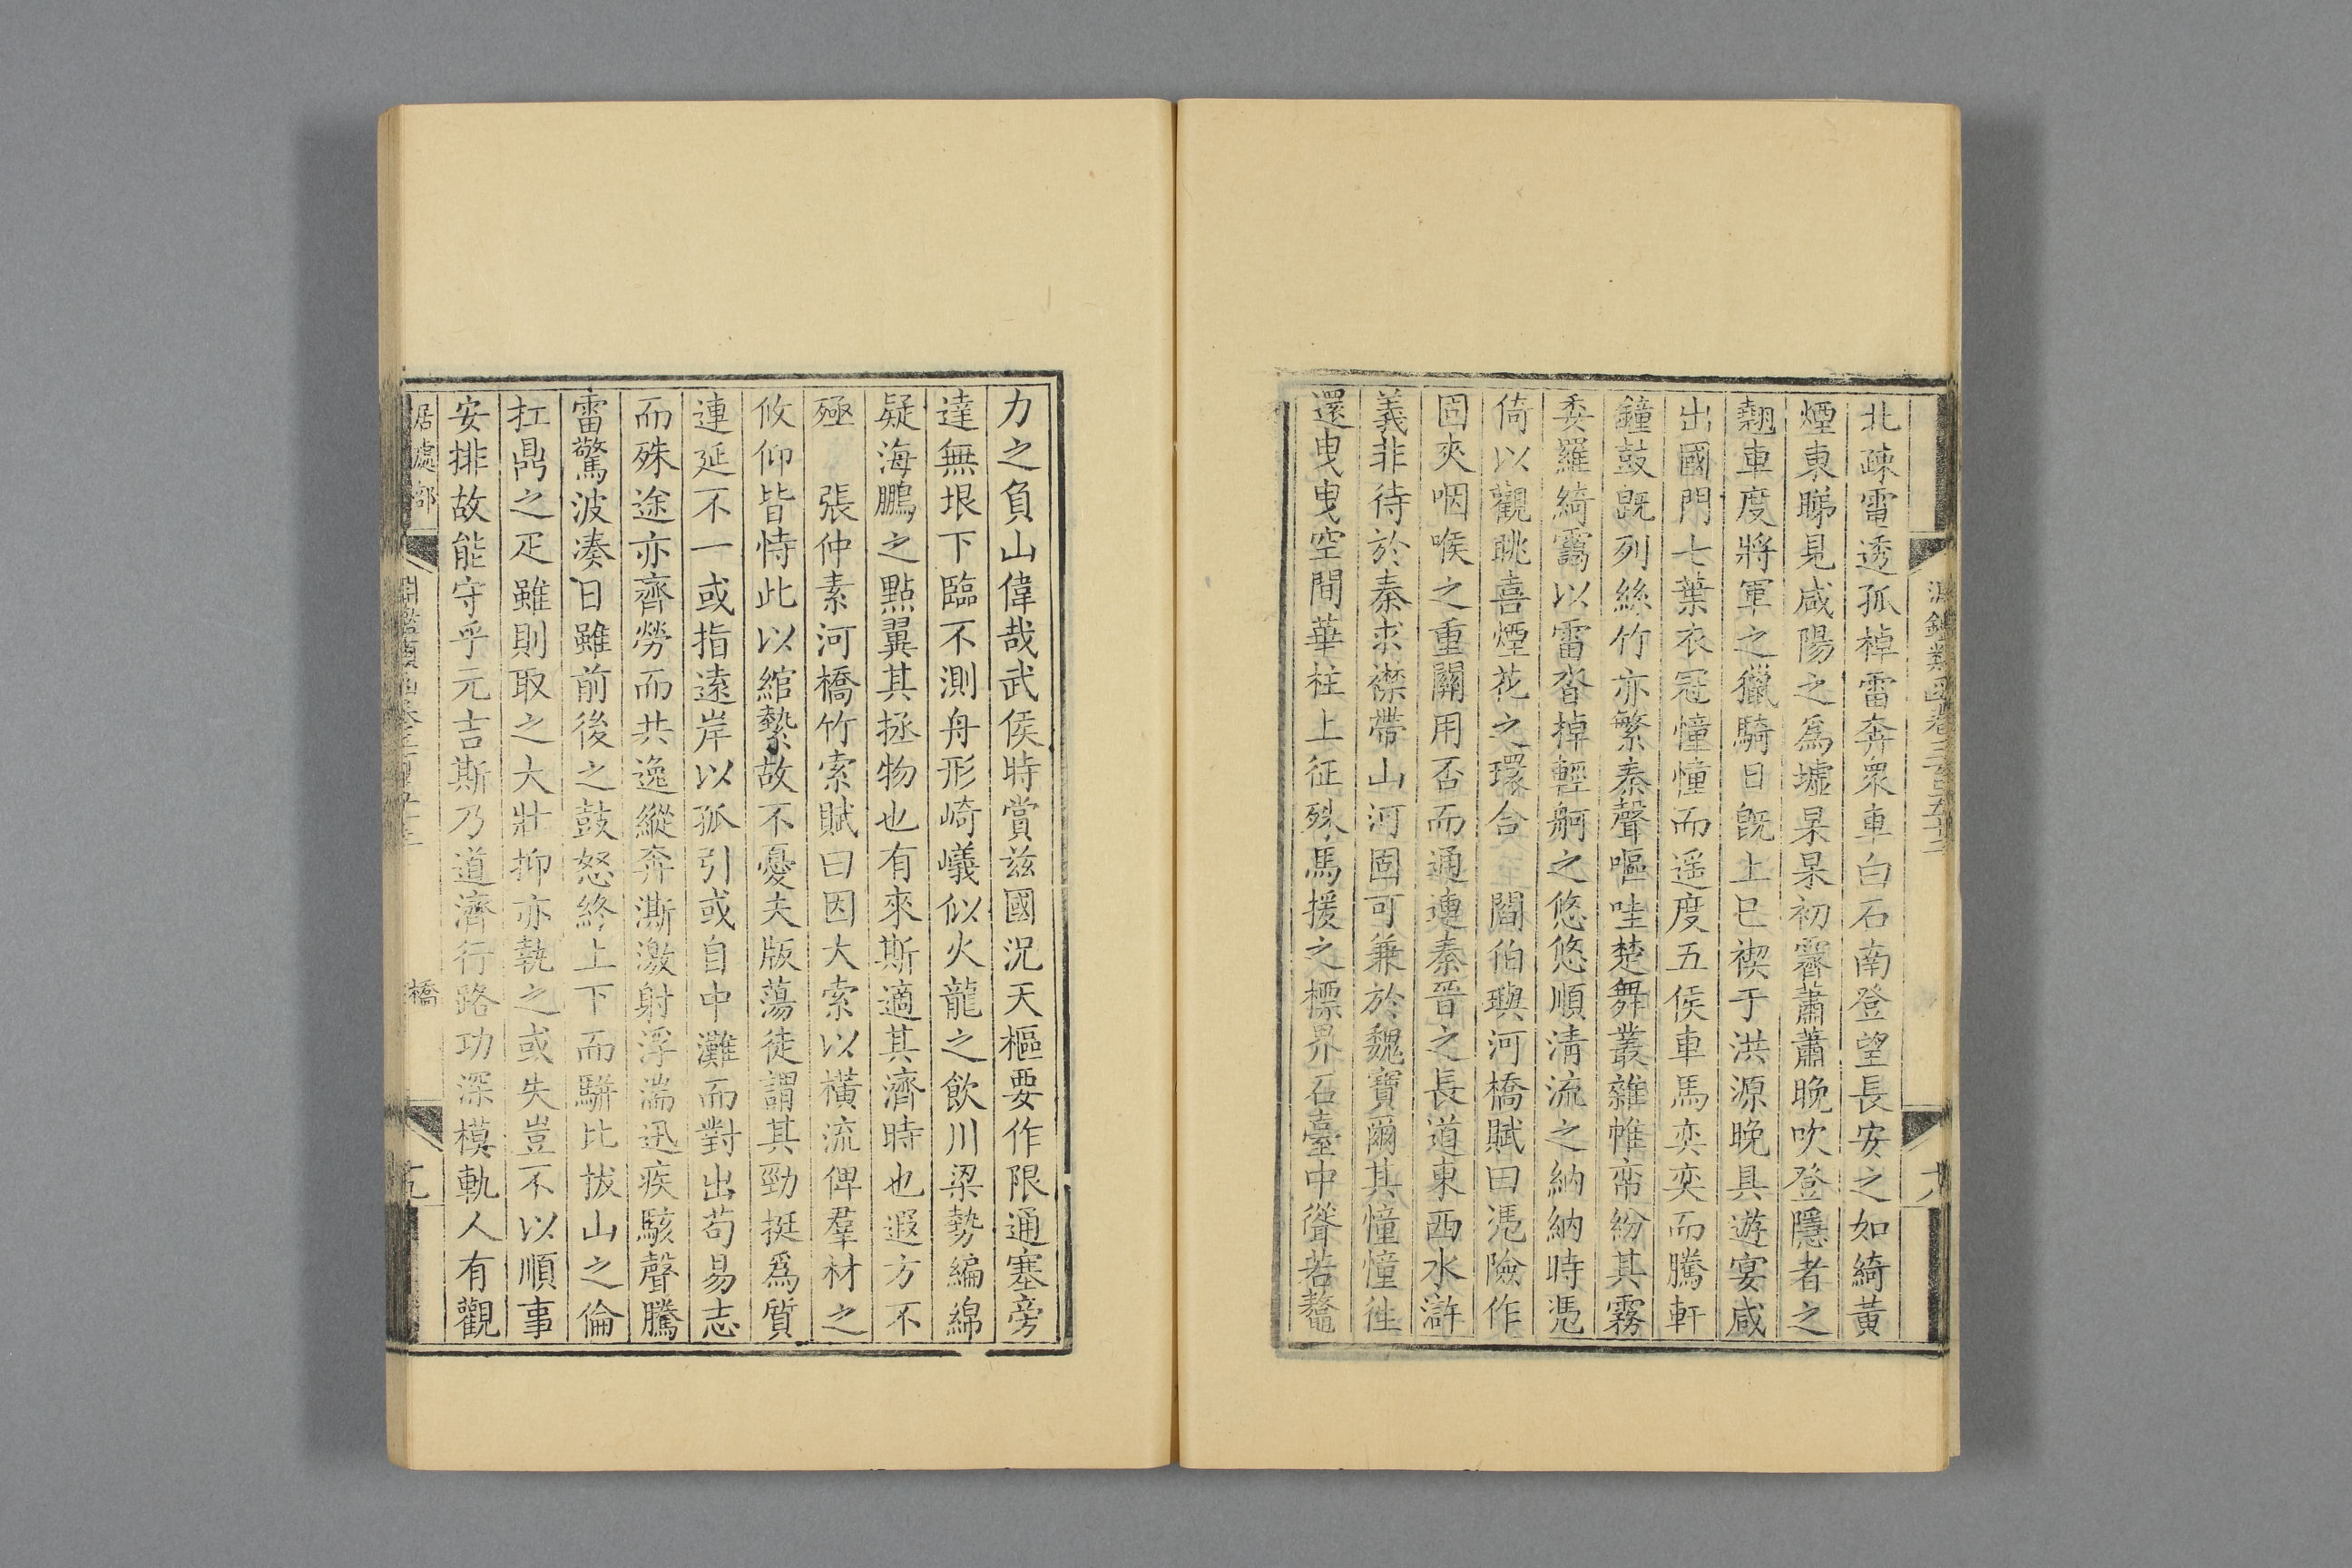 淵鑑類函卷三百五十三
北疎雷透孤棹雷奔衆車白石南登望長安之如綺黃
煙東睇見咸陽之爲墟杲杲初霽蕭蕭晚吹登隱者之
翹車度將軍之獵騎日旣上巳禊于洪源晚具遊宴咸
出國門七葉衣冠憧憧而遥度五侯車馬奕奕而騰軒
鐘鼓旣列絲竹亦繁秦聲嘔哇楚舞叢雜帷帟紛其霧
委羅綺靄以雷沓棹輕舸之悠悠順淸流之納納時凭
倚以觀眺喜煙花之環合 閻伯璵河橋賦曰凭險作
固夾咽喉之重關用否而通連秦晉之長道東西水滸
義非待於秦求襟帶山河固可兼於魏寶爾其憧憧徃
還曳曳空間華柱上征殊馬援之標界石臺中聳若鼇
力之負山偉哉武侯時賞兹國況天樞要作限通塞旁
達無垠下臨不測舟形崎嶬似火龍之飲川梁勢編綿
疑海鵬之點翼其拯物也有來斯適其濟時也遐方不
殛 張仲素河橋竹索賦曰因大索以橫流俾羣材之
攸仰皆恃此以綰縶故不憂夫版蕩徒謂其勁挺爲質
連延不一或指遠岸以孤引或自中灘而對出苟易志
而殊途亦齊勞而共逸縱奔澌激射浮湍迅疾駭聲騰
雷驚波湊日雖前後之鼓怒終上下而駢比拔山之倫
扛鼎之疋雖則取之大壯抑亦執之或失豈不以順事
安排故能守乎元吉斯乃道濟行路功深模軌人有觀
居處部 橋